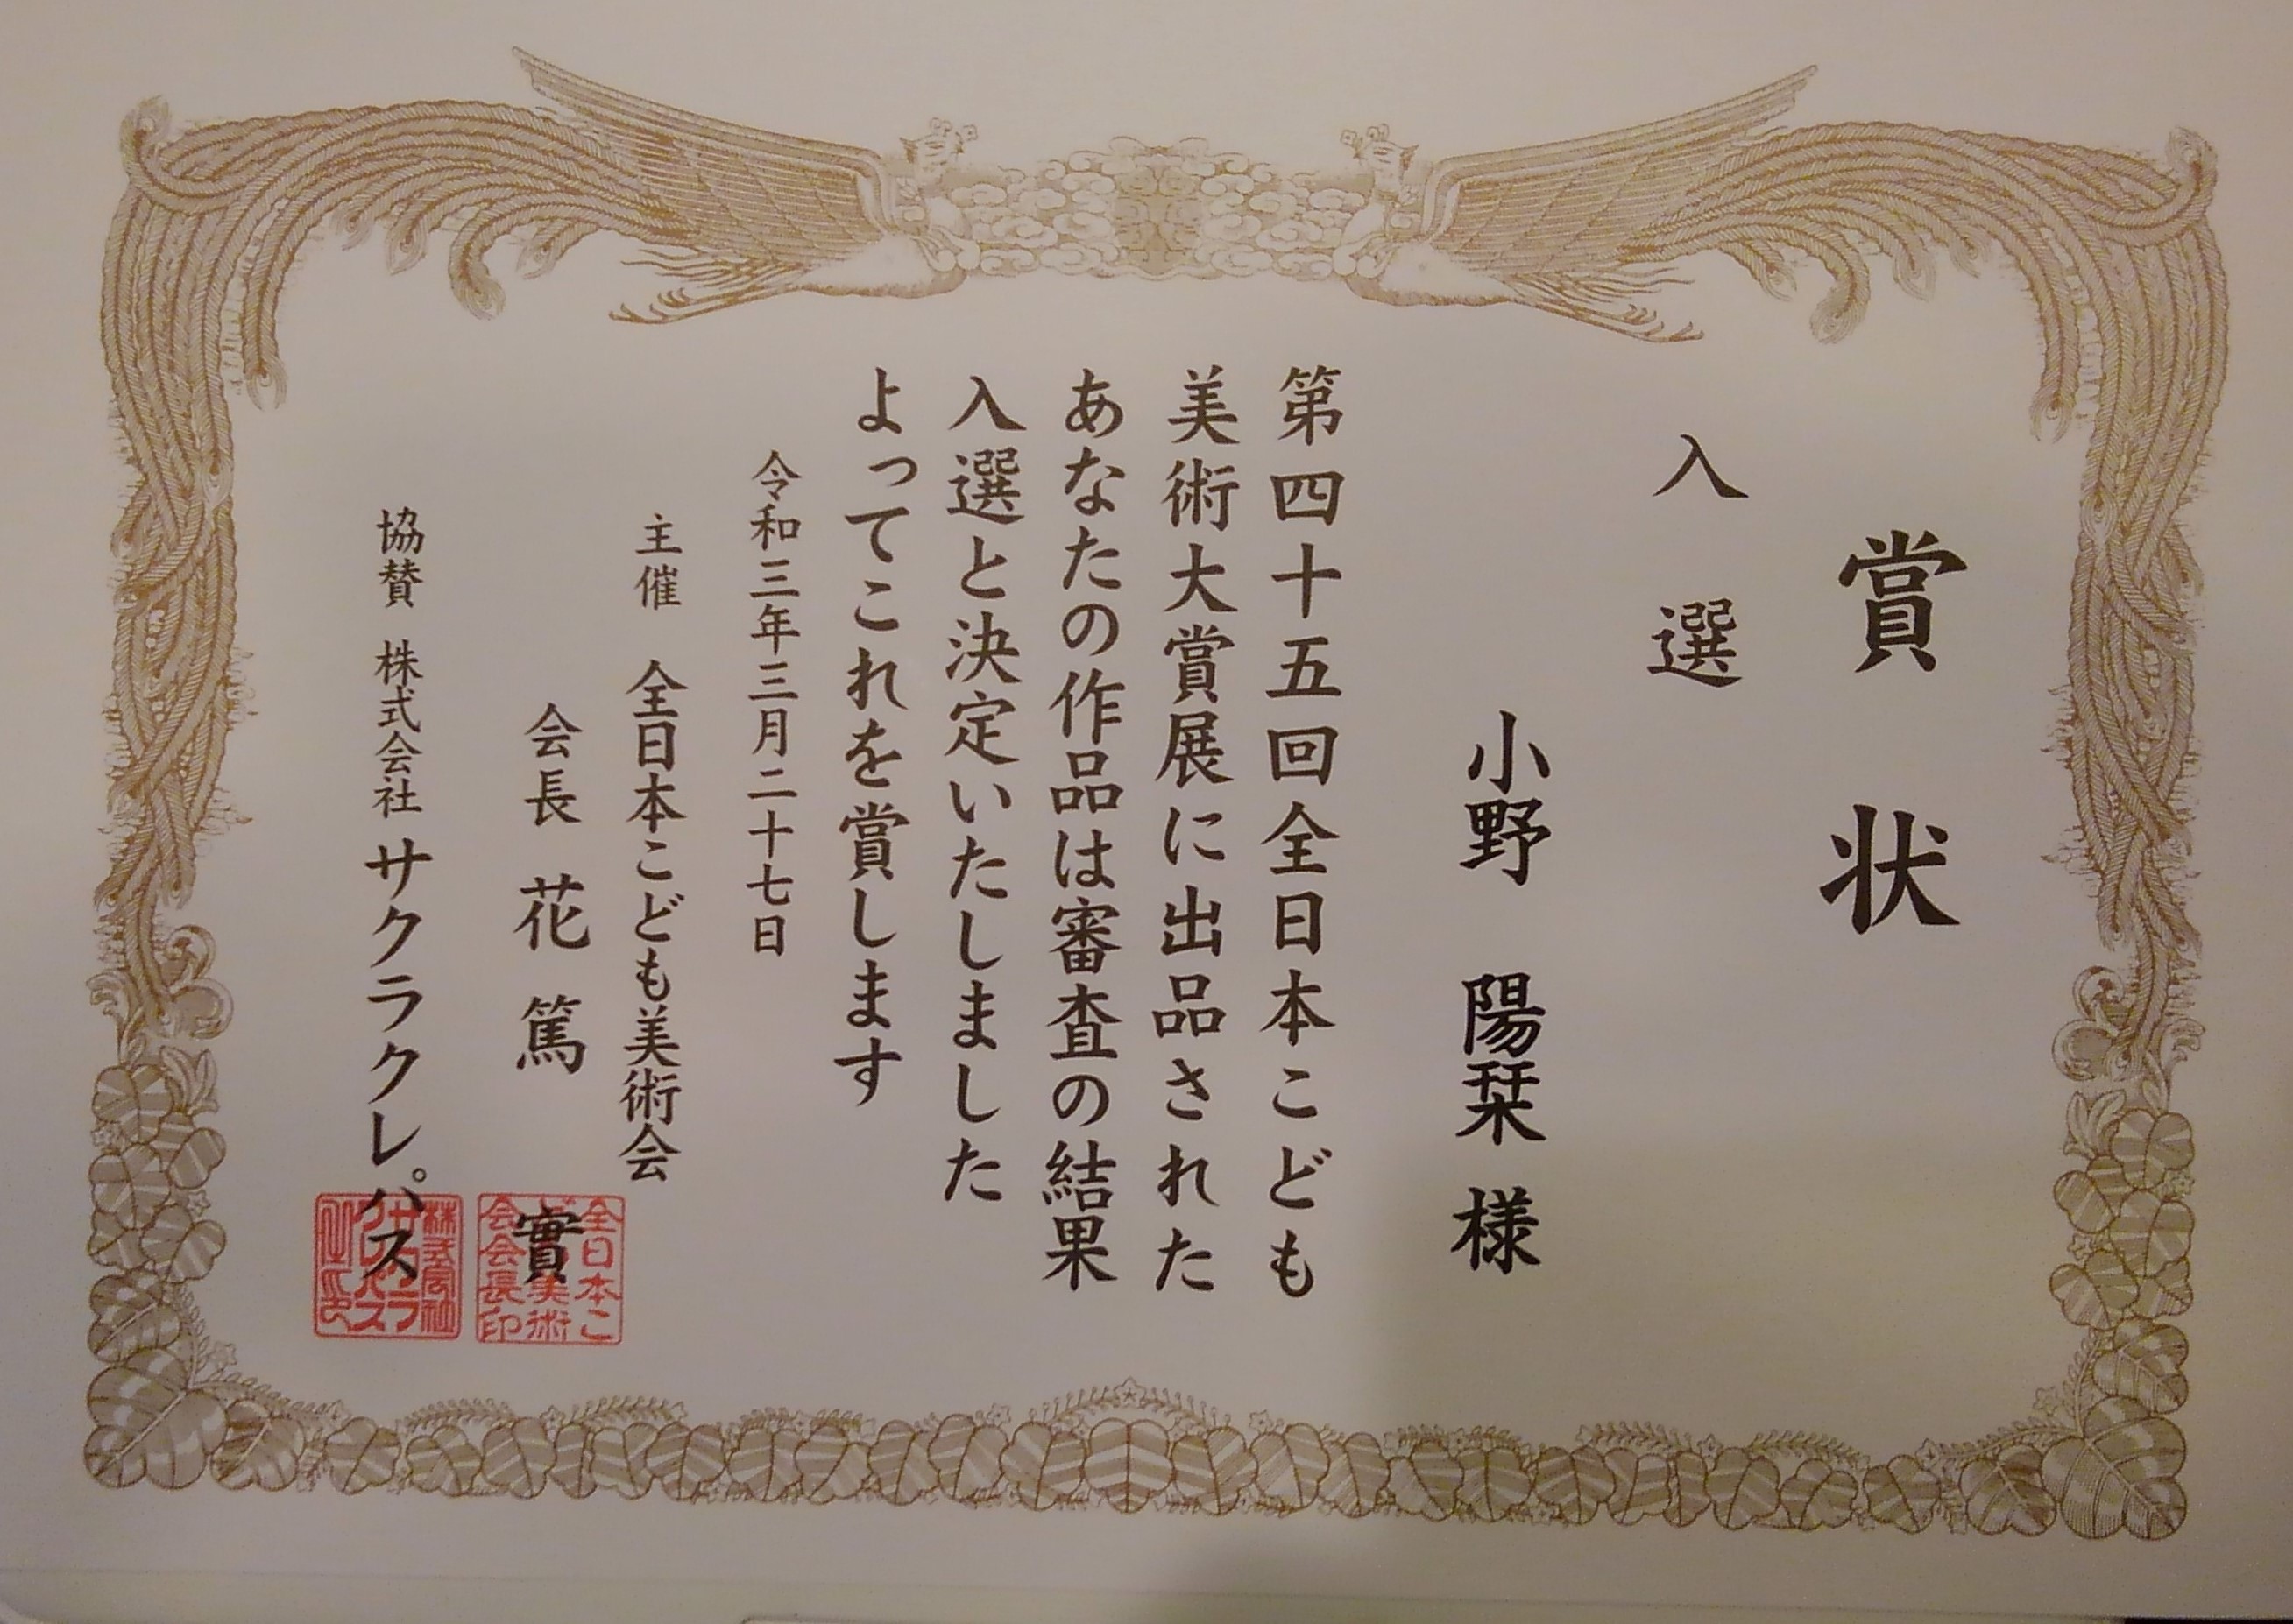 賞状
入選
小野 陽栞 様
第四十五回全日本こども
美術大賞展に出品された
あなたの作品は審査の結果
入選と決定いたしました
よってこれを賞します
令和三年三月二十七日
主催 全日本こども美術会
会長 花篤 實
協賛 株式会社サクラクレパス
全日本こども美術会会長印